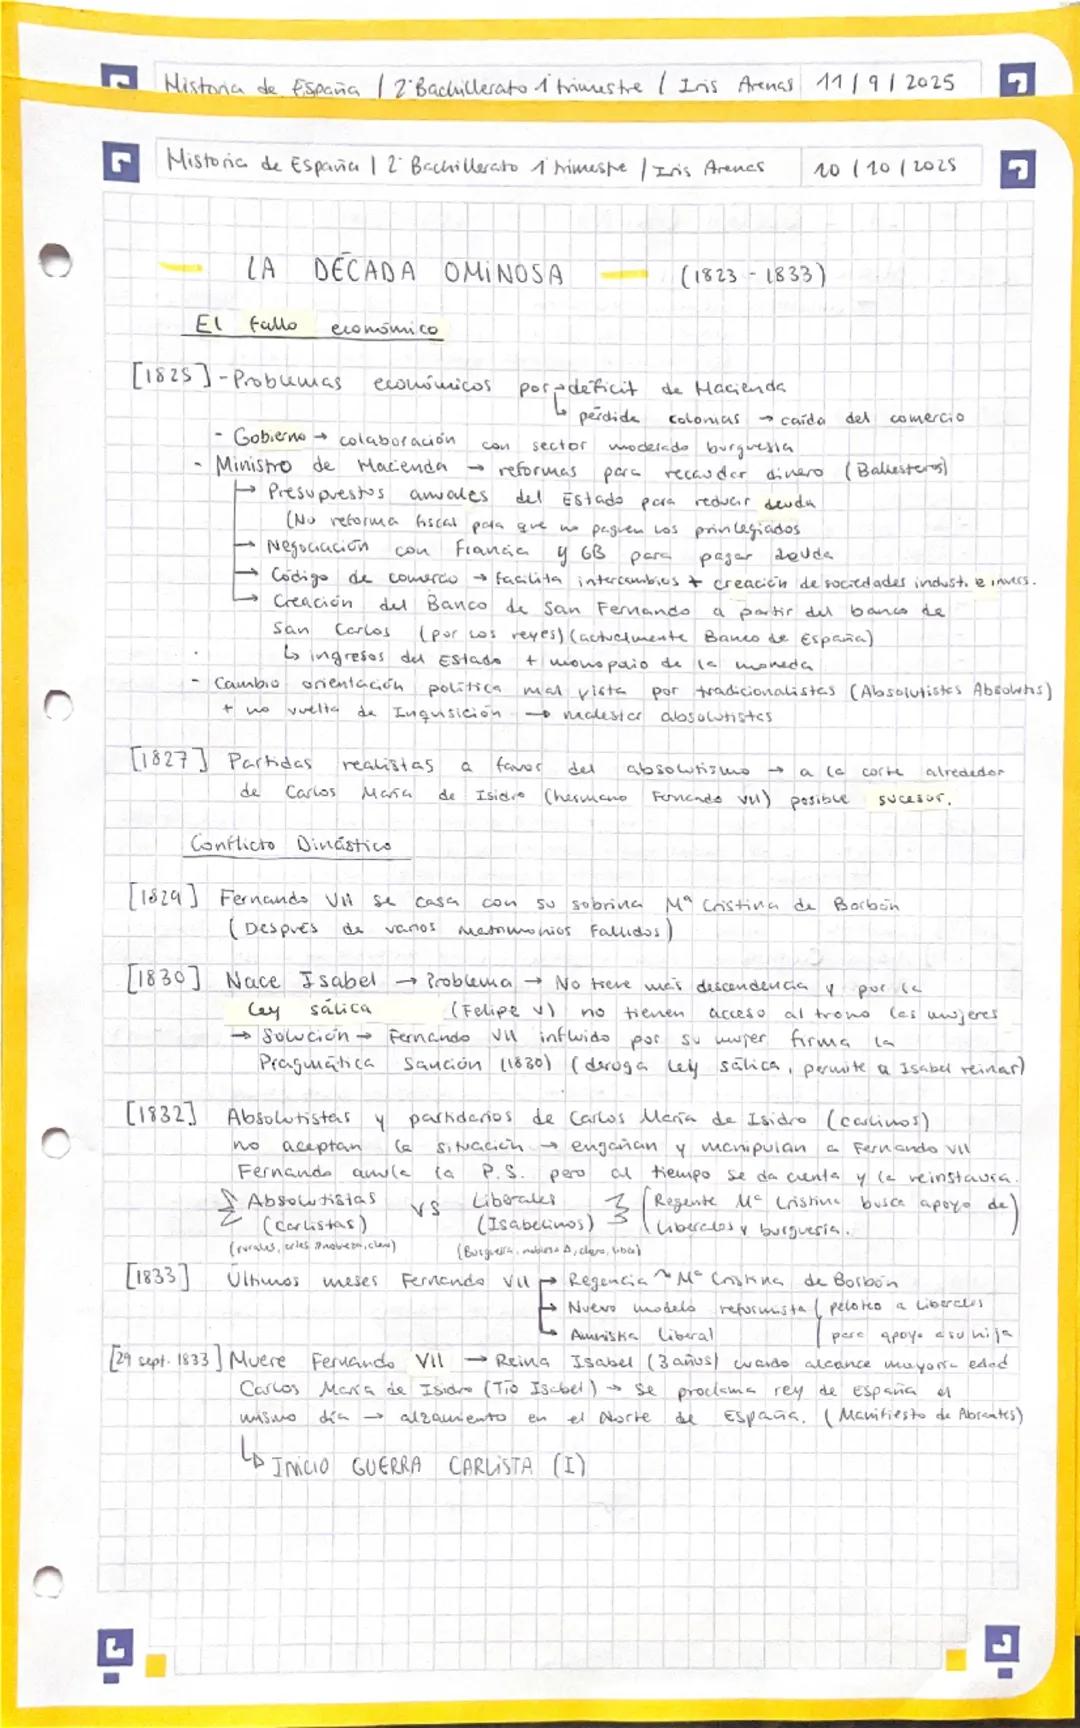 Historia de España / 2º Bachillerato 1º trimestre / Iris Arenas 11 / 9 / 2025
Historia de España / 2º Bachillerato 1º trimestre / Iris Arenas 10 / 10 / 2025
LA DÉCADA OMINOSA (1823 - 1833)
El fallo económico
[1825] - Problemas económicos por → déficit de Hacienda
↳ pérdida colonias → caída del comercio
- Gobierno → colaboración con sector moderado burguesía
- Ministro de Hacienda → reformas para recaudar dinero (Ballesteros)
→ Presupuestos anuales del Estado para reducir deuda
(No reforma fiscal para que no paguen los privilegiados
→ Negociación con Francia y GB para pagar deuda
→ Código de comercio → facilita intercambios + creación de sociedades indust. e invers.
→ Creación del Banco de San Fernando a partir del banco de
San Carlos (por los reyes) (actualmente Banco de España)
↳ ingresos del Estado + monopolio de la moneda
- Cambio orientación política mal vista por tradicionalistas (Absolutistas Absolutis)
+ no vuelta de Inquisición → malestar absolutistas
[1827] Partidas realistas a favor del absolutismo → a la corte alrededor
de Carlos María de Isidro (hermano Fernando VII) posible sucesor.
Conflicto Dinástico
[1829] Fernando VII se casa con su sobrina Mª Cristina de Borbón
(Después de varios matrimonios fallidos)
[1830] Nace Isabel → Problema → No tiene más descendencia y por la
Ley sálica (Felipe V) no tienen acceso al trono las mujeres
→ Solución → Fernando VII influido por su mujer firma la
Pragmática Sanción (1830) (deroga Ley sálica, permite a Isabel reinar)
[1832] Absolutistas y partidarios de Carlos María de Isidro (carlinos)
no aceptan la situación → engañan y manipulan a Fernando VII
Fernando anula la P.S. pero al tiempo se da cuenta y la reinstaura.
Absolutistas VS Liberales (Regente Mª Cristina busca apoyo de
(Carlistas) (Isabelinos) liberales y burguesía.)
(rurales, nobleza, clero) (Burguesía, nobleza, clero, liberal)
[1833] Últimos meses Fernando VII → Regencia ~ Mª Cristina de Borbón
→ Nuevo modelo reformista ( peloteo a liberales
→ Amnistía liberal para apoyo a su hija
[29 sept. 1833] Muere Fernando VII → Reina Isabel (3 años) cuando alcance mayoría edad
Carlos María de Isidro (Tío Isabel) → se proclama rey de España el
mismo día → alzamiento en el Norte de España. (Manifiesto de Abrantes)
↳ INICIO GUERRA CARLISTA (I)